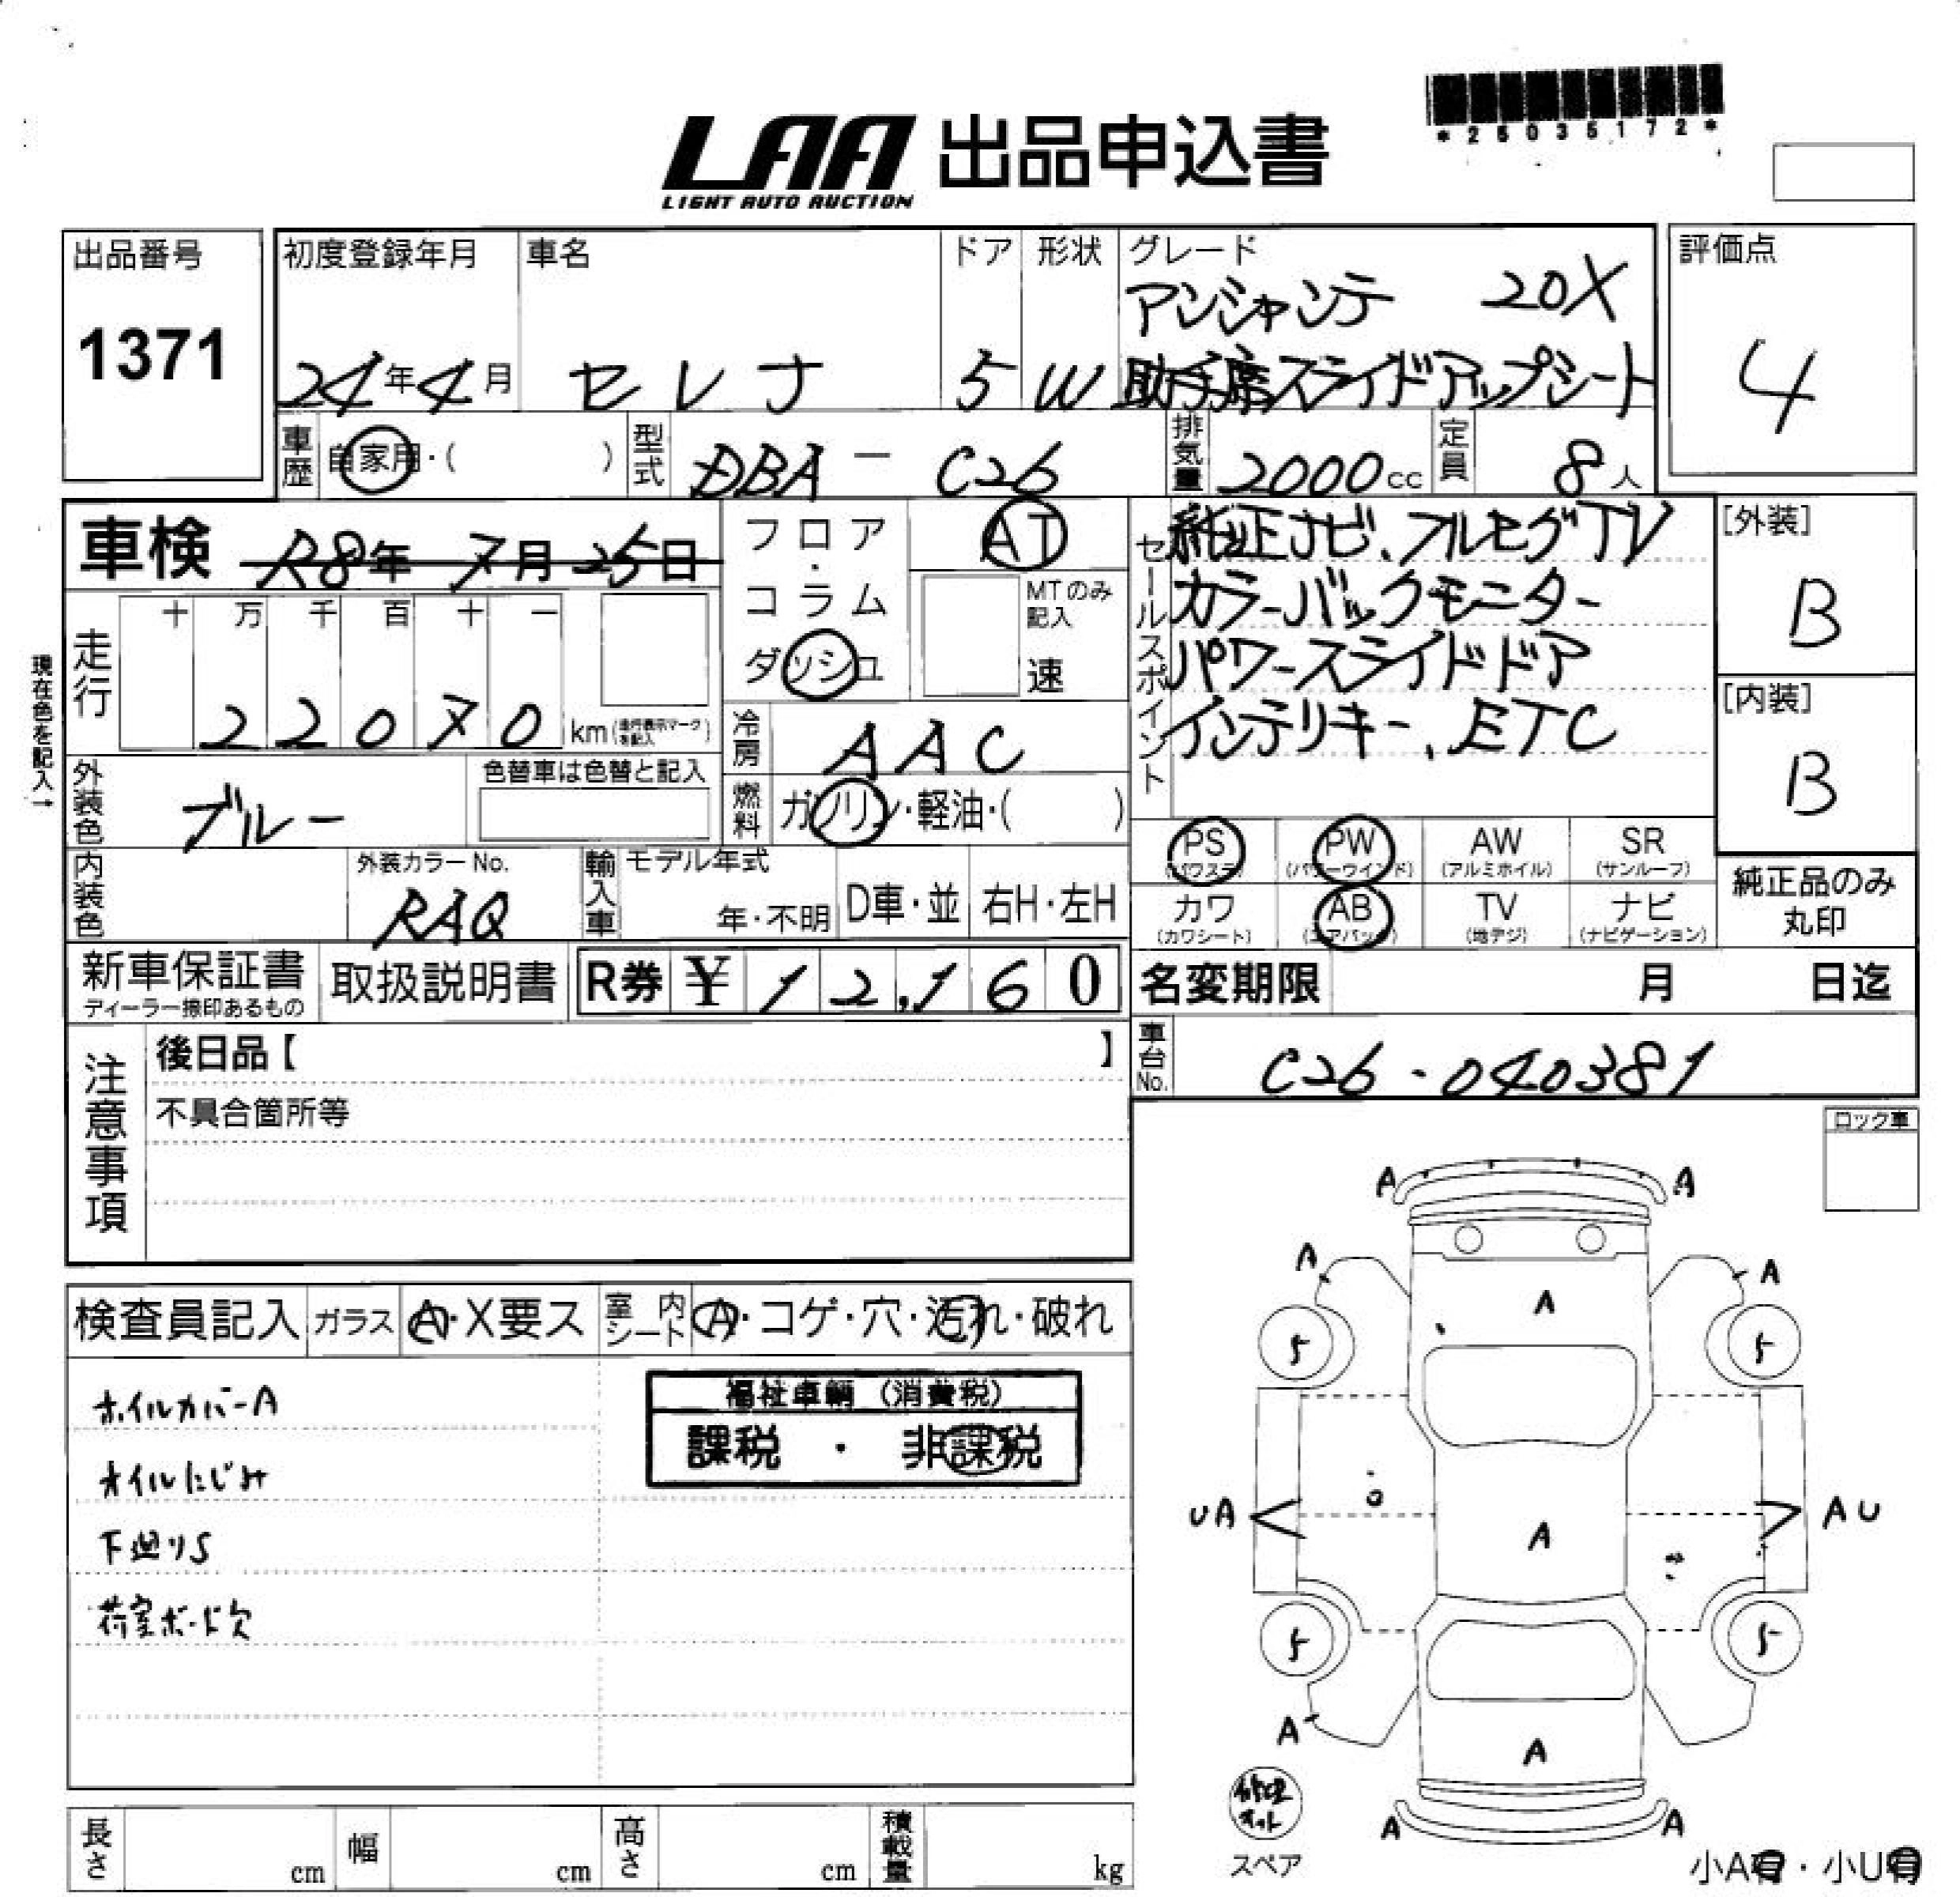 *25035172*
LAA 出品申込書
LIGHT AUTO AUCTION
出品番号
1371
初度登録年月
24年4月
車名
セレナ
ドア
5
形状
W
グレード
アンシャンテ 20X
助手席スライドアップシート
評価点
4
車歴 自家用・( )
型式 DBA - C26
排気量 2000cc
定員 8人
車検 R8年 7月 25日
フロア・コラム
ダッシュ
AT
MTのみ記入
速
セールスポイント
純正ナビ、フルセグTV
カラーバックモニター
パワースライドドア
インテリキー、ETC
[外装]
B
[内装]
B
現在色を記入→
走行
十 万 千 百 十 一
2 2 0 7 0 km
冷房 AAC
燃料 ガソリン・軽油・( )
外装色 ブルー
色替車は色替と記入
内装色
外装カラーNo.
RAQ
輸入車 モデル年式
年・不明 D車・並 右H・左H
PS (パワステ) PW (パワーウインド) AW (アルミホイル) SR (サンルーフ)
カワ (カワシート) AB (エアバッグ) TV (地デジ) ナビ (ナビゲーション)
純正品のみ
丸印
新車保証書
ディーラー捺印あるもの
取扱説明書
R券 ¥ 12,160
名変期限 月 日迄
車台No. C26-040381
注意事項
後日品【 】
不具合箇所等
ロック車
検査員記入 ガラス A・X要ス 室内シート A・コゲ・穴・汚れ・破れ
ホイルカバーA
オイルにじみ
下廻りS
荷室ボード欠
福祉車輌 (消費税)
課税 ・ 非課税
A A
A A
A
5 5
UA A AU
5 5
A
A
A A
修理キット
スペア
小A有・小U有
長さ cm 幅 cm 高さ cm 積載量 kg